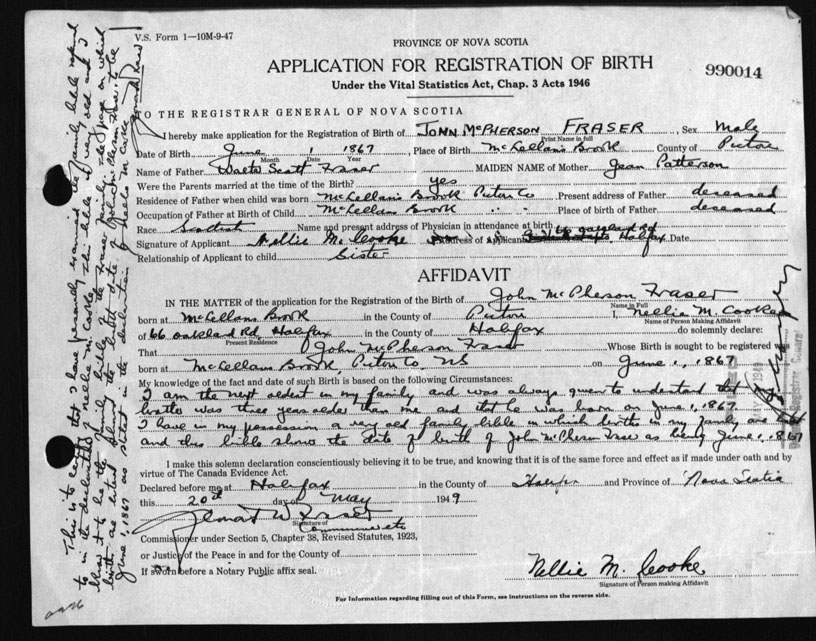 V.S. Form 1—10M-9-47
PROVINCE OF NOVA SCOTIA
APPLICATION FOR REGISTRATION OF BIRTH
Under the Vital Statistics Act, Chap. 3 Acts 1946
990014
TO THE REGISTRAR GENERAL OF NOVA SCOTIA
I hereby make application for the Registration of Birth of JOHN McPHERSON FRASER Sex Male
Print Name in full
Date of Birth June 1 1867 Place of Birth McLellans Brook County of Pictou
Month Date Year
Name of Father Walter Scott Fraser MAIDEN NAME of Mother Jean Patterson
Were the Parents married at the time of Birth? yes
Residence of Father when child was born McLellan's Brook Pictou Co Present address of Father deceased
Occupation of Father at Birth of Child McLellans Brook Place of birth of Father deceased
Race Scotish Name and present address of Physician in attendance at birth
Signature of Applicant Nellie M. Cooke Address of Applicant 66 Oakland Rd Halifax Date
Relationship of Applicant to child Sister
AFFIDAVIT
IN THE MATTER of the application for the Registration of Birth of John McPherson Fraser
Name in Full
born at McLellans Brook in the County of Pictou I, Nellie M. Cooke
Name of Person Making Affidavit
of 66 Oakland Rd, Halifax in the County of Halifax do solemnly declare:
Present Residence
That John McPherson Fraser Whose Birth is sought to be registered was
born at McLellans Brook, Pictou Co. NS on June 1, 1867
My knowledge of the fact and date of such Birth is based on the following Circumstances:
I am the next oldest in my family and was always given to understand that
brother was three years older than me and that he was born on June 1, 1867
I have in my possession a very old family bible in which births in my family are
and this bible shows the date of birth of John McPherson Fraser as being June 1, 1867
I make this solemn declaration conscientiously believing it to be true, and knowing that it is of the same force and effect as if made under oath and by
virtue of The Canada Evidence Act.
Declared before me at Halifax in the County of Halifax and Province of Nova Scotia
this 20th day of May 1949
W Fraser
Signature of
Commissioner under Section 5, Chapter 38, Revised Statutes, 1923,
or Justice of the Peace in and for the County of
If sworn before a Notary Public affix seal.
Nellie M. Cooke
Signature of Person making Affidavit
For Information regarding filling out of this Form, see instructions on the reverse side.
This is to certify that I have personally examined the family bible
in the declaration of Nellie M. Cooke. The bible is very old and I
June 1, 1867 as stated in the declaration of Nellie M Cooke